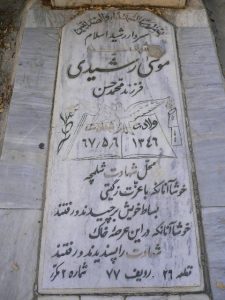 سردار رشید اسلام
موسی رشیدی
فرزند محمدحسن
ولادت شهادت
۱۳۴۶ ۶۷/۵/۶
محل شهادت شلمچه
خوشا آنانکه با عزت ز گیتی
بساط خویش برچیدند و رفتند
خوشا آنانکه در این عرصه خاک
شهادت را پسندیدند و رفتند
قطعه ۲۶ ردیف ۷۷ شماره ۲ مکرر